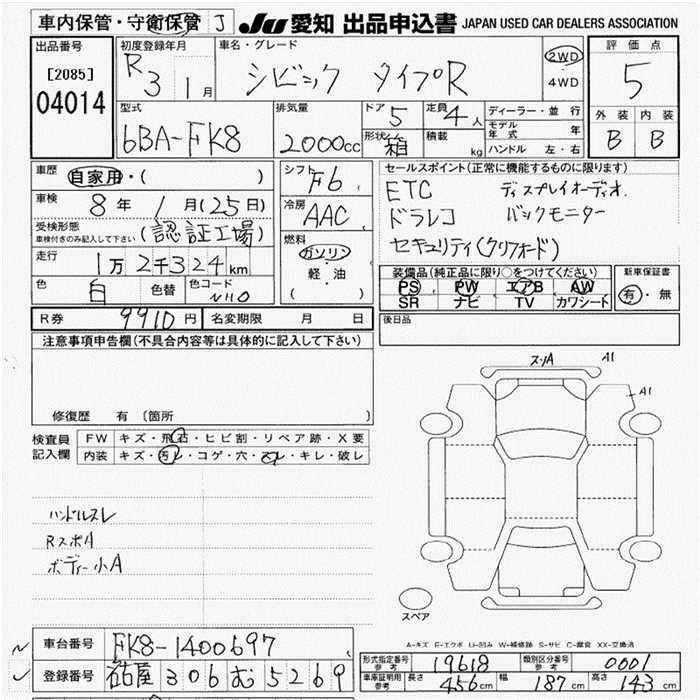 車内保管・守衛保管 J
JU 愛知 出品申込書 JAPAN USED CAR DEALERS ASSOCIATION
出品番号
[2085]
04014
初度登録年月
R 3 1 月
車名・グレード
シビック タイプR
2WD
4WD
評価点
5
外装 内装
B B
型式
6BA-FK8
排気量
2000cc
ドア
5
定員
4人
形状
箱
積載
kg
ディーラー・並行
モデル年式 年
ハンドル 左・右
車歴
自家用・( )
車検
8年 1月(25日)
受検形態
車検付きのみ記入して下さい
(認証工場)
走行
1万2千324km
色
白
色替
色コード
NH0
シフト
F6
冷房
AAC
燃料
ガソリン
軽・油
( )
セールスポイント(正常に機能するものに限ります)
ETC ディスプレイオーディオ.
ドラレコ バックモニター
セキュリティ(クリフォード)
装備品(純正品に限り○をつけてください)
PS PW エアB AW
SR ナビ TV カワシート
新車保証書
有・無
R券 9910円 名変期限 月 日
後日品
注意事項申告欄(不具合内容等は具体的に記入して下さい)
修復歴 有〔箇所 〕
検査員記入欄
FW キズ・飛石・ヒビ割・リペア跡・X要
内装 キズ・汚レ・コゲ・穴・スレ・キレ・破レ
ハンドルスレ
RスポA
ボディー小A
スリA A1
A1
スペア
A-キズ E-エクボ U-凹み W-補修跡 S-サビ C-腐食 XX-交換済
車台番号 FK8-1400697
登録番号 名古屋 306 む 5269
形式指定番号 参考 19618 類別区分番号 参考 0001
車庫証明用 参考 長さ 456cm 幅 187cm 高さ 143cm